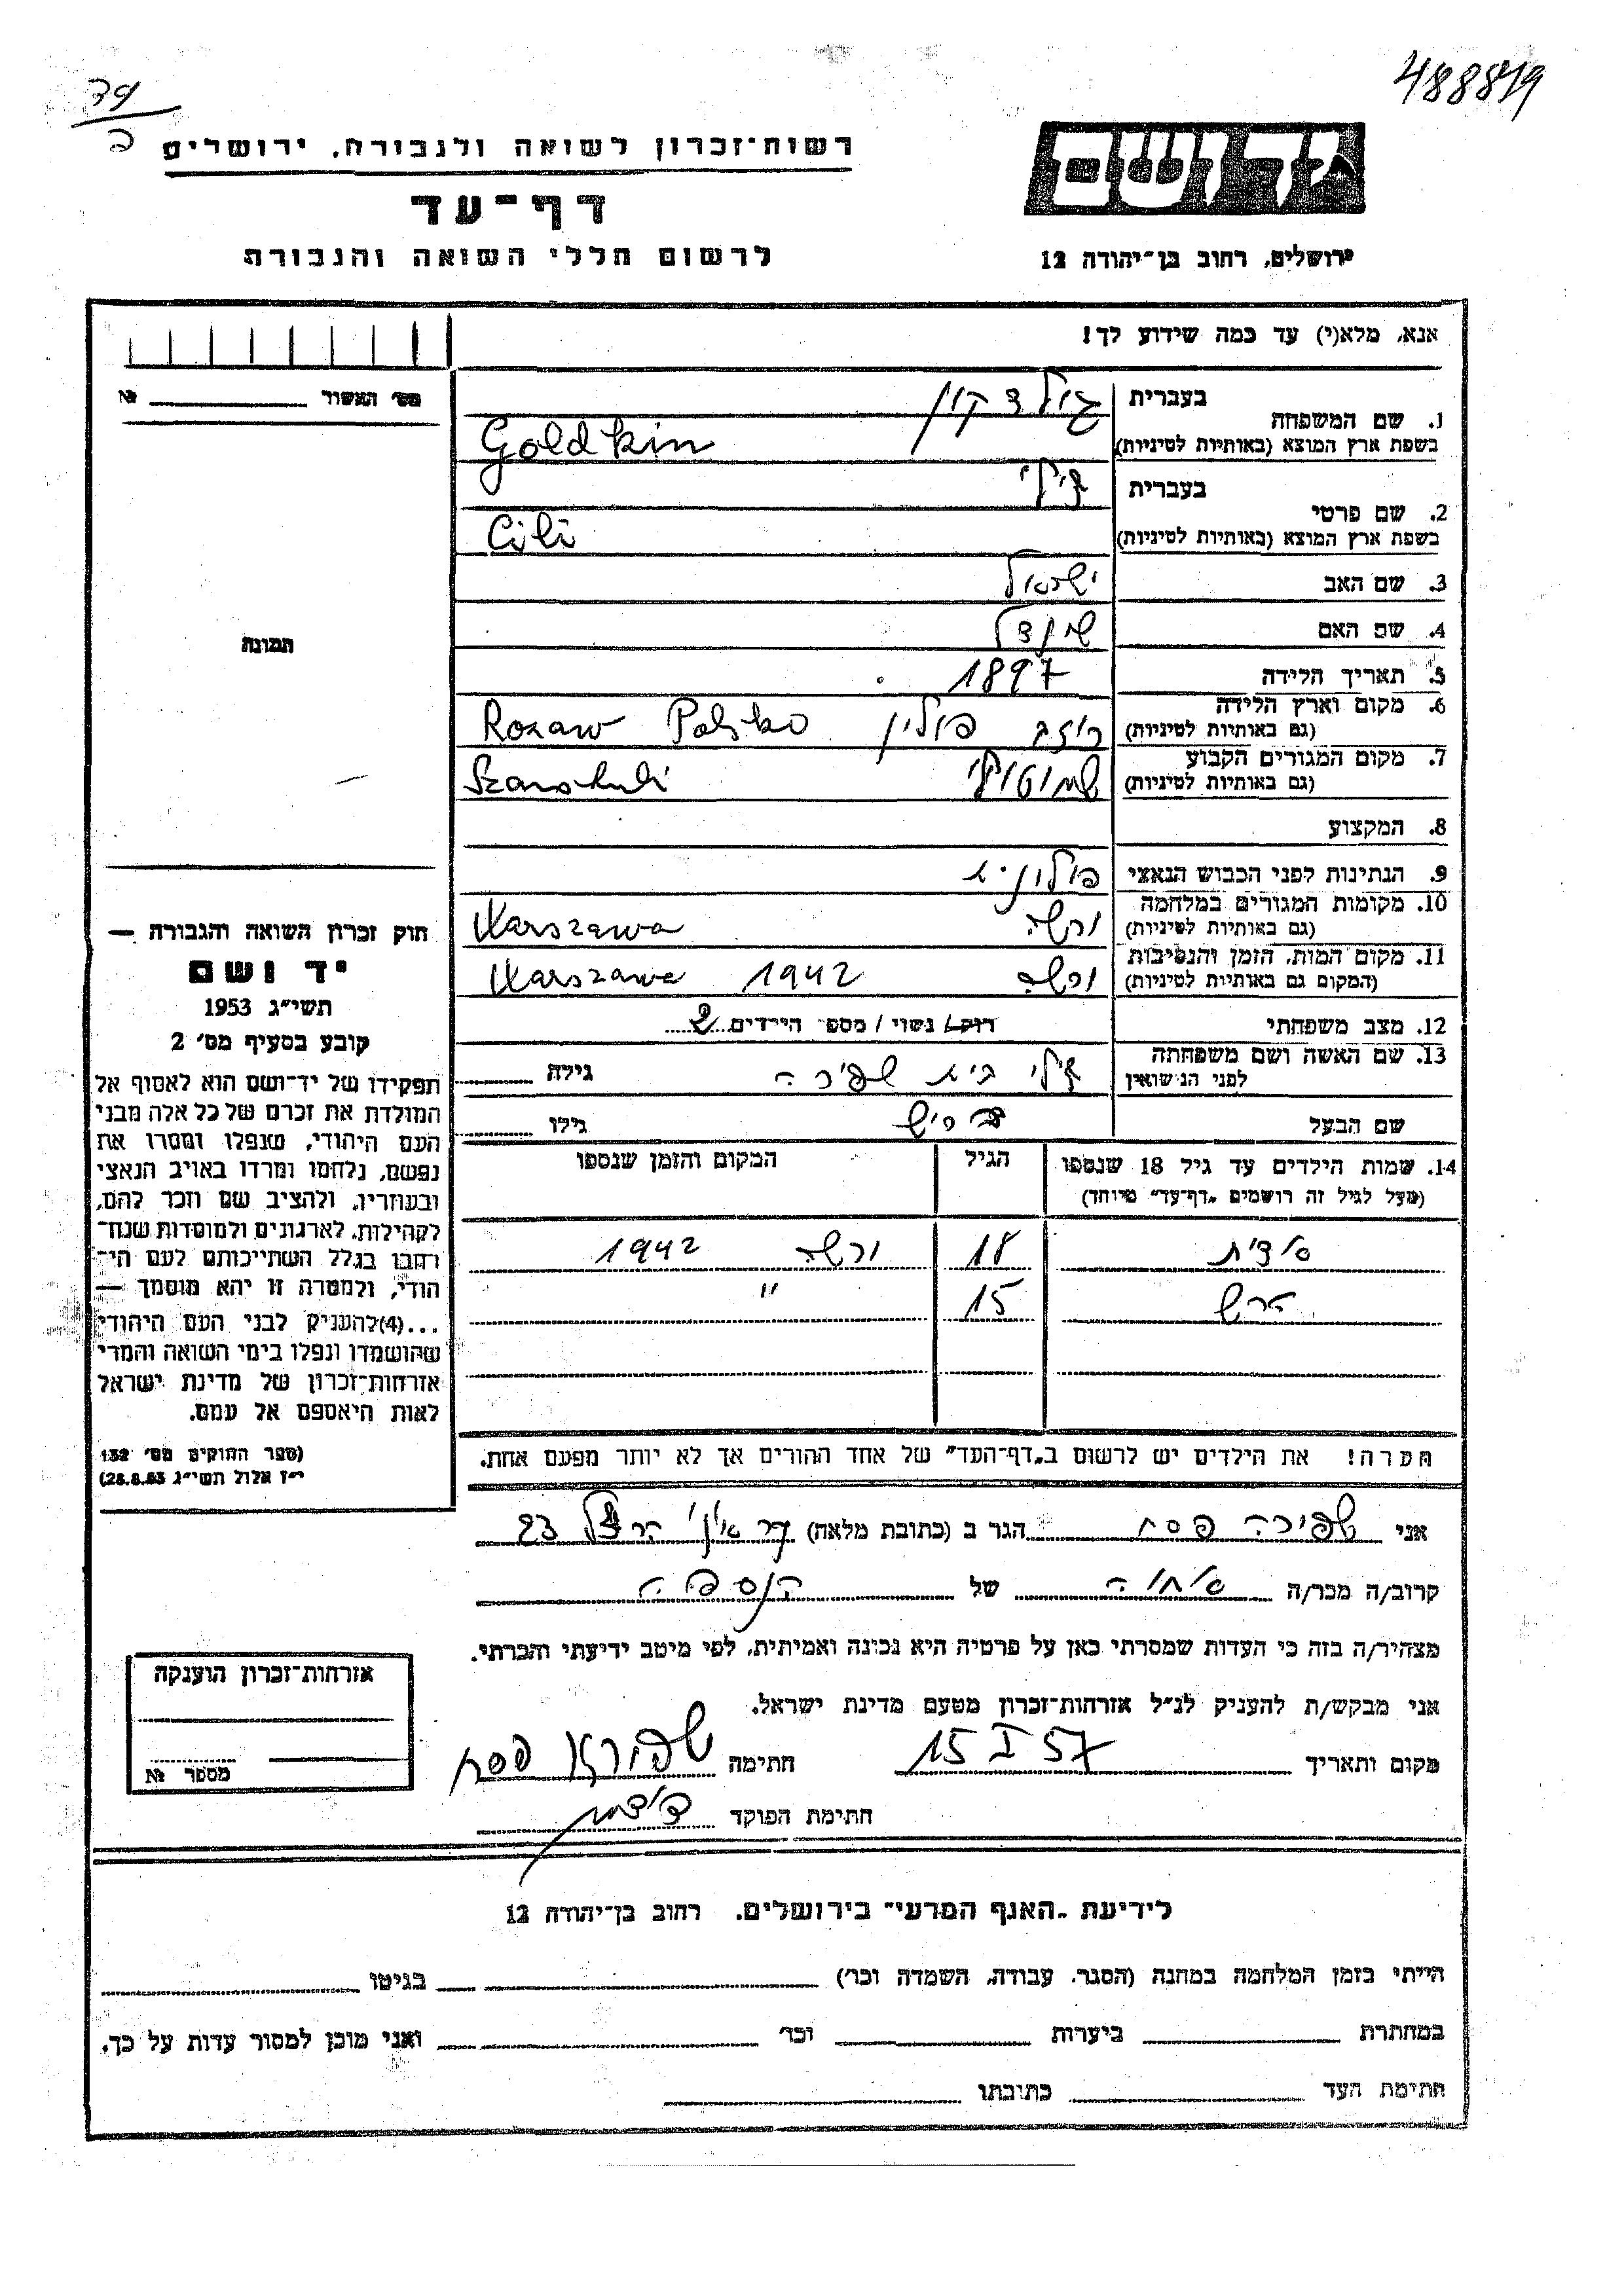 488819
דף
כ
רשות־זכרון לשואה ולגבורה, ירושלים
דף־עד
לרשום חללי השואה והגבורה
יד ושם
ירושלים, רחוב בן־יהודה 12
אנא, מלא(י) עד כמה שידוע לך!
מס׳ האשור № 
1. שם המשפחה
בעברית גולדקין
בשפת ארץ המוצא (באותיות לטיניות) Goldkin
2. שם פרטי
בעברית צילי
בשפת ארץ המוצא (באותיות לטיניות) Cili
3. שם האב ישראל
4. שם האם שינדל
5. תאריך הלידה 1897
6. מקום וארץ הלידה
(גם באותיות לטיניות) רוזב פולין Rozaw Polsko
7. מקום המגורים הקבוע
(גם באותיות לטיניות)
8. המקצוע
9. הנתינות לפני הכבוש הנאצי פולונית
10. מקומות המגורים במלחמה
(גם באותיות לטיניות) ורשה Warszawa
11. מקום המות, הזמן והנסיבות
(המקום גם באותיות לטיניות) ורשה 1942 Warszawa
12. מצב משפחתי רוק/ נשוי / מספר הילדים 2
13. שם האשה ושם משפחתה
לפני הנישואין צילי בית שפירה גילה
שם הבעל בריש גילו
14. שמות הילדים עד גיל 18 שנספו הגיל המקום והזמן שנספו
(מעל לגיל זה רושמים „דף־עד״ מיוחד)
18 ורשה 1942
הרש 15 "
הערה! את הילדים יש לרשום ב„דף־העד״ של אחד ההורים אך לא יותר מפעם אחת.
תמונה
חוק זכרון השואה והגבורה —
יד ושם
תשי״ג 1953
קובע בסעיף מס׳ 2
תפקידו של יד־ושם הוא לאסוף אל
המולדת את זכרם של כל אלה מבני
העם היהודי, שנפלו ומסרו את
נפשם, נלחמו ומרדו באויב הנאצי
ובעוזריו, ולהציב שם וזכר להם,
לקהילות, לארגונים ולמוסדות שנח־
רבו בגלל השתייכותם לעם הי־
הודי, ולמטרה זו יהא מוסמך —
...(4) להעניק לבני העם היהודי
שהושמדו ונפלו בימי השואה והמרי
אזרחות־זכרון של מדינת ישראל
לאות היאספם אל עמם.
(ספר החוקים מס׳ 132
י״ז אלול תשי״ג 28.8.53)
אני שפירה פסח הגר ב (כתובת מלאה) הרצל 23
קרוב/ה מכר/ה של הנספה
מצהיר/ה בזה כי העדות שמסרתי כאן על פרטיה היא נכונה ואמיתית, לפי מיטב ידיעתי והכרתי.
אני מבקש/ת להעניק לנ״ל אזרחות־זכרון מטעם מדינת ישראל.
מקום ותאריך 15 I 57 חתימה שפירא פסח
חתימת הפוקד
אזרחות־זכרון הוענקה
מספר №
לידיעת „האגף המדעי״ בירושלים, רחוב בן־יהודה 12
הייתי בזמן המלחמה במחנה (הסגר, עבודה, השמדה וכו׳) בגיטו
במחתרת ביערות וכו׳ ואני מוכן למסור עדות על כך.
חתימת העד כתובתו